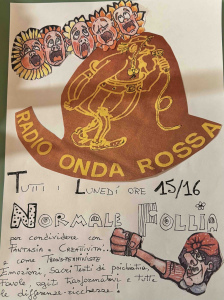 RADIO ONDA ROSSA
TUTTI I LUNEDÍ ORE 15/16
NORMALE FOLLIA
per condividere con
FANTASIA e CREATIVITÀ..
e come TRANSFEMMINISTE
Emozioni, Sacri Testi di psichiatria,
favole, agiti trasformativi e tutte
le differenze-ricchezze!